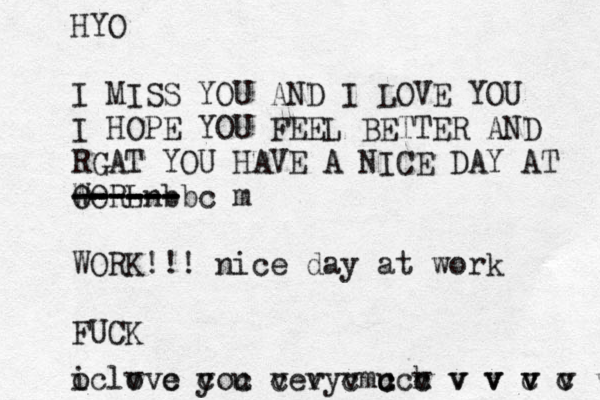 HYO
I MISS YOU AND I LOVE YOU
I HOPE YOU FEEL BETTER AND
RGAT YOU HAVE A NICE DAY AT
m
WORK!!! nice day at work
FUCK
love you very v v v v